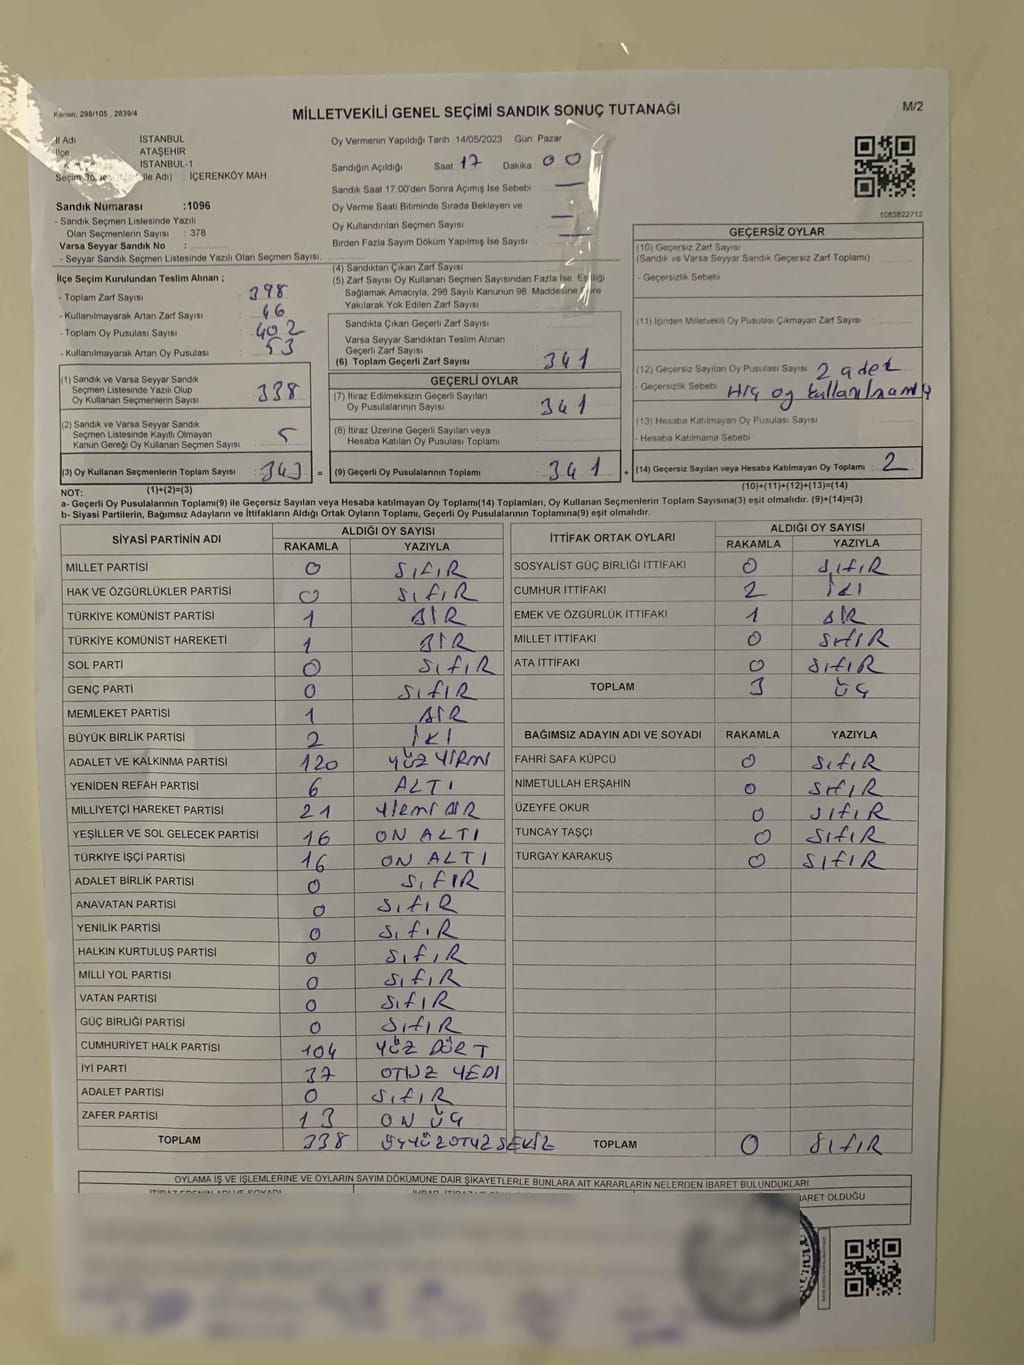 Kanun, 298/105 , 2839/4
MİLLETVEKİLİ GENEL SEÇİMİ SANDIK SONUÇ TUTANAĞI
M/2
İl Adı : İSTANBUL
İlçe : ATAŞEHİR
İSTANBUL-1
Seçim : İÇERENKÖY MAH
Sandık Numarası :1096
- Sandık Seçmen Listesinde Yazılı
Olan Seçmenlerin Sayısı : 378
Varsa Seyyar Sandık No :
- Seyyar Sandık Seçmen Listesinde Yazılı Olan Seçmen Sayısı:
Oy Vermenin Yapıldığı Tarih 14/05/2023 Gün: Pazar
Sandığın Açıldığı Saat 17 Dakika 00
Sandık Saat 17.00'den Sonra Açımış İse Sebebi —
Oy Verme Saati Bitiminde Sırada Bekleyen ve
Oy Kullandırılan Seçmen Sayısı —
Birden Fazla Sayım Döküm Yapılmış İse Sayısı —
1083822712
İlçe Seçim Kurulundan Teslim Alınan ;
- Toplam Zarf Sayısı 398
- Kullanılmayarak Artan Zarf Sayısı
- Toplam Oy Pusulası Sayısı 402
- Kullanılmayarak Artan Oy Pusulası 53
(1) Sandık ve Varsa Seyyar Sandık
Seçmen Listesinde Yazılı Olup
Oy Kullanan Seçmenlerin Sayısı 338
(2) Sandık ve Varsa Seyyar Sandık
Seçmen Listesinde Kayıtlı Olmayan
Kanun Gereği Oy Kullanan Seçmen Sayısı 5
(3) Oy Kullanan Seçmenlerin Toplam Sayısı : 343 =
(1)+(2)=(3)
(4) Sandıktan Çıkan Zarf Sayısı
(5) Zarf Sayısı Oy Kullanan Seçmen Sayısından Fazla İse, Eşitliği
Sağlamak Amacıyla, 298 Sayılı Kanunun 98. Maddesine Göre
Yakılarak Yok Edilen Zarf Sayısı
Sandıkta Çıkan Geçerli Zarf Sayısı
Varsa Seyyar Sandıktan Teslim Alınan
Geçerli Zarf Sayısı
(6) Toplam Geçerli Zarf Sayısı 341
GEÇERLİ OYLAR
(7) İtiraz Edilmeksizin Geçerli Sayılan
Oy Pusulalarının Sayısı 341
(8) İtiraz Üzerine Geçerli Sayılan veya
Hesaba Katılan Oy Pusulası Toplamı
(9) Geçerli Oy Pusulalarının Toplamı 341 +
GEÇERSİZ OYLAR
(10) Geçersiz Zarf Sayısı
(Sandık ve Varsa Seyyar Sandık Geçersiz Zarf Toplamı)
- Geçersizlik Sebebi
(11) İçinden Milletvekili Oy Pusulası Çıkmayan Zarf Sayısı
(12) Geçersiz Sayılan Oy Pusulası Sayısı 2 adet
- Geçersizlik Sebebi Hiç oy
(13) Hesaba Katılmayan Oy Pusulası Sayısı
- Hesaba Katılmama Sebebi
(14) Geçersiz Sayılan veya Hesaba Katılmayan Oy Toplamı : 2
(10)+(11)+(12)+(13)=(14)
NOT:
a- Geçerli Oy Pusulalarının Toplamı(9) ile Geçersiz Sayılan veya Hesaba katılmayan Oy Toplamı(14) Toplamları, Oy Kullanan Seçmenlerin Toplam Sayısına(3) eşit olmalıdır. (9)+(14)=(3)
b- Siyasi Partilerin, Bağımsız Adayların ve İttifakların Aldığı Ortak Oyların Toplamı, Geçerli Oy Pusulalarının Toplamına(9) eşit olmalıdır.
SİYASİ PARTİNİN ADI
ALDIĞI OY SAYISI
RAKAMLA YAZIYLA
MİLLET PARTİSİ 0 SIFIR
HAK VE ÖZGÜRLÜKLER PARTİSİ 0 SIFIR
TÜRKİYE KOMÜNİST PARTİSİ 1 BİR
TÜRKİYE KOMÜNİST HAREKETİ 1 BİR
SOL PARTİ 0 SIFIR
GENÇ PARTİ 0 SIFIR
MEMLEKET PARTİSİ 1 BİR
BÜYÜK BİRLİK PARTİSİ 2 İKİ
ADALET VE KALKINMA PARTİSİ 120 YÜZ YİRMİ
YENİDEN REFAH PARTİSİ 6 ALTI
MİLLİYETÇİ HAREKET PARTİSİ 21 YİRMİ BİR
YEŞİLLER VE SOL GELECEK PARTİSİ 16 ON ALTI
TÜRKİYE İŞÇİ PARTİSİ 16 ON ALTI
ADALET BİRLİK PARTİSİ 0 SIFIR
ANAVATAN PARTİSİ 0 SIFIR
YENİLİK PARTİSİ 0 SIFIR
HALKIN KURTULUŞ PARTİSİ 0 SIFIR
MİLLİ YOL PARTİSİ 0 SIFIR
VATAN PARTİSİ 0 SIFIR
GÜÇ BİRLİĞİ PARTİSİ 0 SIFIR
CUMHURİYET HALK PARTİSİ 104 YÜZ DÖRT
İYİ PARTİ 37 OTUZ YEDİ
ADALET PARTİSİ 0 SIFIR
ZAFER PARTİSİ 13 ON ÜÇ
TOPLAM 338 ÜÇYÜZOTUZSEKİZ
İTTİFAK ORTAK OYLARI
ALDIĞI OY SAYISI
RAKAMLA YAZIYLA
SOSYALİST GÜÇ BİRLİĞİ İTTİFAKI 0 SIFIR
CUMHUR İTTİFAKI 2 İKİ
EMEK VE ÖZGÜRLÜK İTTİFAKI 1 BİR
MİLLET İTTİFAKI 0 SIFIR
ATA İTTİFAKI 0 SIFIR
TOPLAM 3 ÜÇ
BAĞIMSIZ ADAYIN ADI VE SOYADI RAKAMLA YAZIYLA
FAHRİ SAFA KÜPCÜ 0 SIFIR
NİMETULLAH ERŞAHİN 0 SIFIR
ÜZEYFE OKUR 0 SIFIR
TUNCAY TAŞÇI 0 SIFIR
TURGAY KARAKUŞ 0 SIFIR
TOPLAM 0 SIFIR
OYLAMA İŞ VE İŞLEMLERİNE VE OYLARIN SAYIM DÖKÜMÜNE DAİR ŞİKAYETLERLE BUNLARA AİT KARARLARIN NELERDEN İBARET BULUNDUKLARI
OLDUĞU